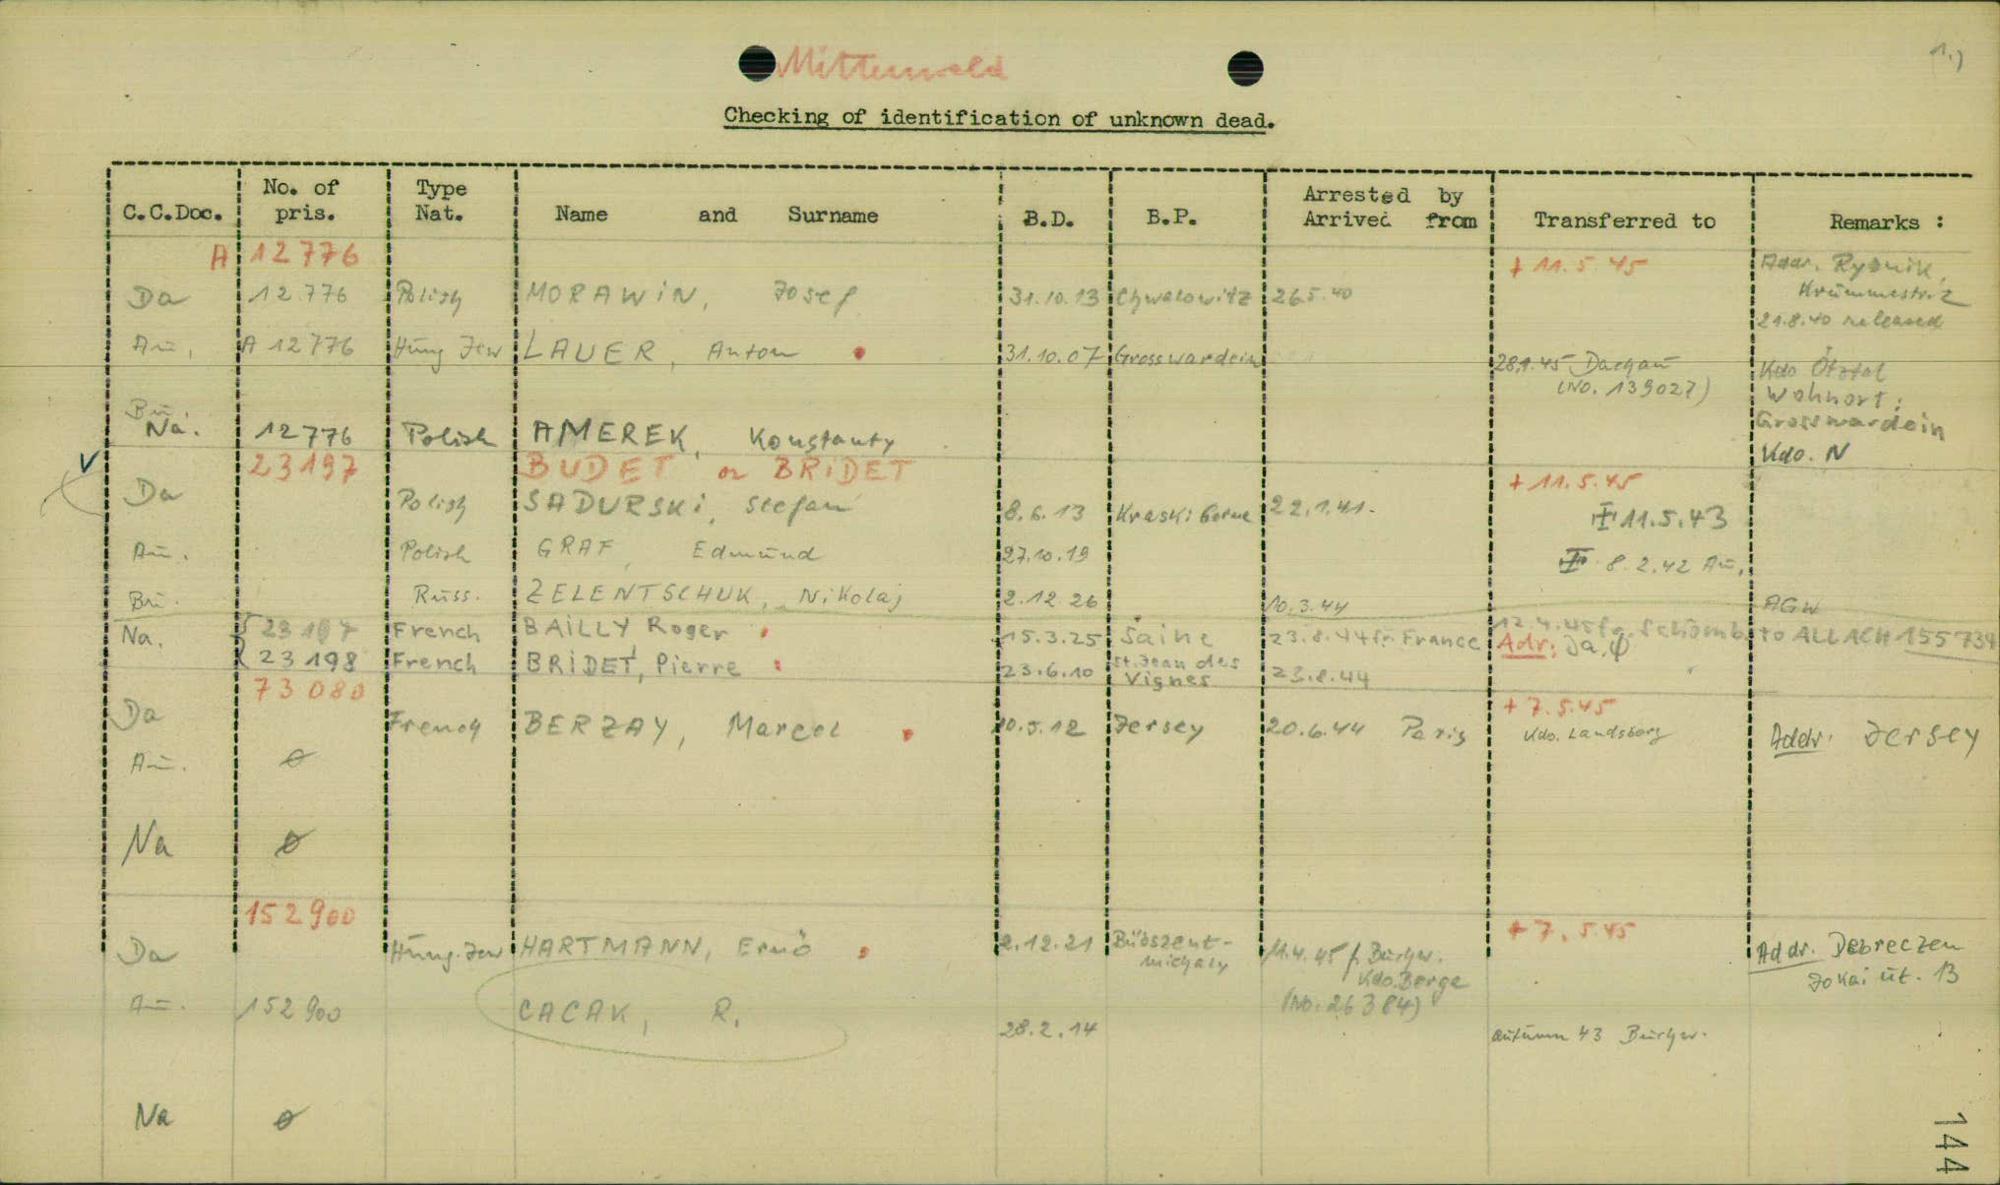 Mittenwald
1.)
Checking of identification of unknown dead.
C.C.Doc. No. of pris. Type Nat. Name and Surname B.D. B.P. Arrested by Arrived from Transferred to Remarks :
A 12776 + 11.5.45 Addr. Rybnik,
Da 12.776 Polish MORAWIN, Josef 31.10.13 Chwalowitz 26.5.40
21.8.40 released
Au. A 12776 Hung Jew LAUER, Anton 31.10.07 Grosswardein 28.1.45 Dachau Kdo Ötztal
(No. 139027) Wohnort:
Bu. Grosswardein
Na. 12776 Polish AMEREK, Konstanty Kdo. N
V 23197 BUDET or BRIDET + 11.5.45
Da Polish SADURSKI, Stefan 8.6.13 Kraski Gorne 22.1.41. 11.5.43
Au. Polish GRAF, Edmund 27.10.19 8.2.42 Au.
Bu. Russ. ZELENTSCHUK, Nikolaj 2.12.26 10.3.44 AGW
Na. 23197 French BAILLY Roger 15.3.25 Saine 23.8.44 fr. France 12.4.45 fr. Schömb. to ALLACH 155734
Adr: Da. φ
23198 French BRIDET, Pierre 23.6.10 St. Jean des Vignes 23.8.44
73080 + 7.5.45
Da French BERZAY, Marcel 10.5.12 Jersey 20.6.44 Paris Kdo. Landsberg Addr. Jersey
Au. ø
Na ø
152900 + 7.5.45
Da Hung. Jew HARTMANN, Ernö 2.12.21 Büdszent-michaly 11.4.45 f. Buchw. Addr. Debreczen
Kdo. Berga Jokai ut. 13
Au. 152900 CACAK, R. 28.2.14 (No. 26384) autumn 43 Buchw.
Na ø
144